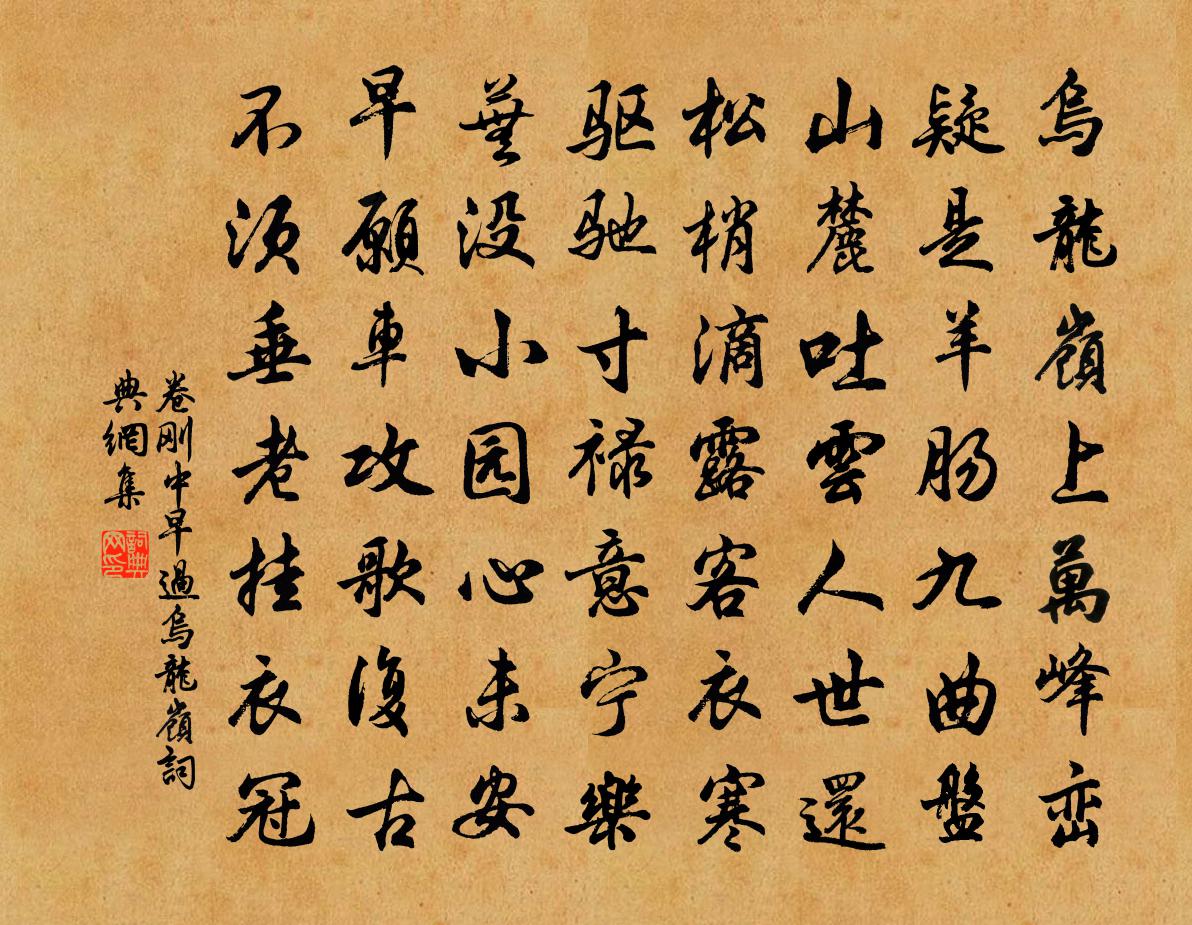 烏龍嶺上萬峰峦
疑是羊肠九曲盤
山麓吐雲人世還
松梢滴露客衣寒
驱驰寸禄意宁樂
蕪没小园心未安
早願車攻歌復古
不须垂老挂衣冠
卷刚中早過烏龍嶺詞
典網集
詞典
网印